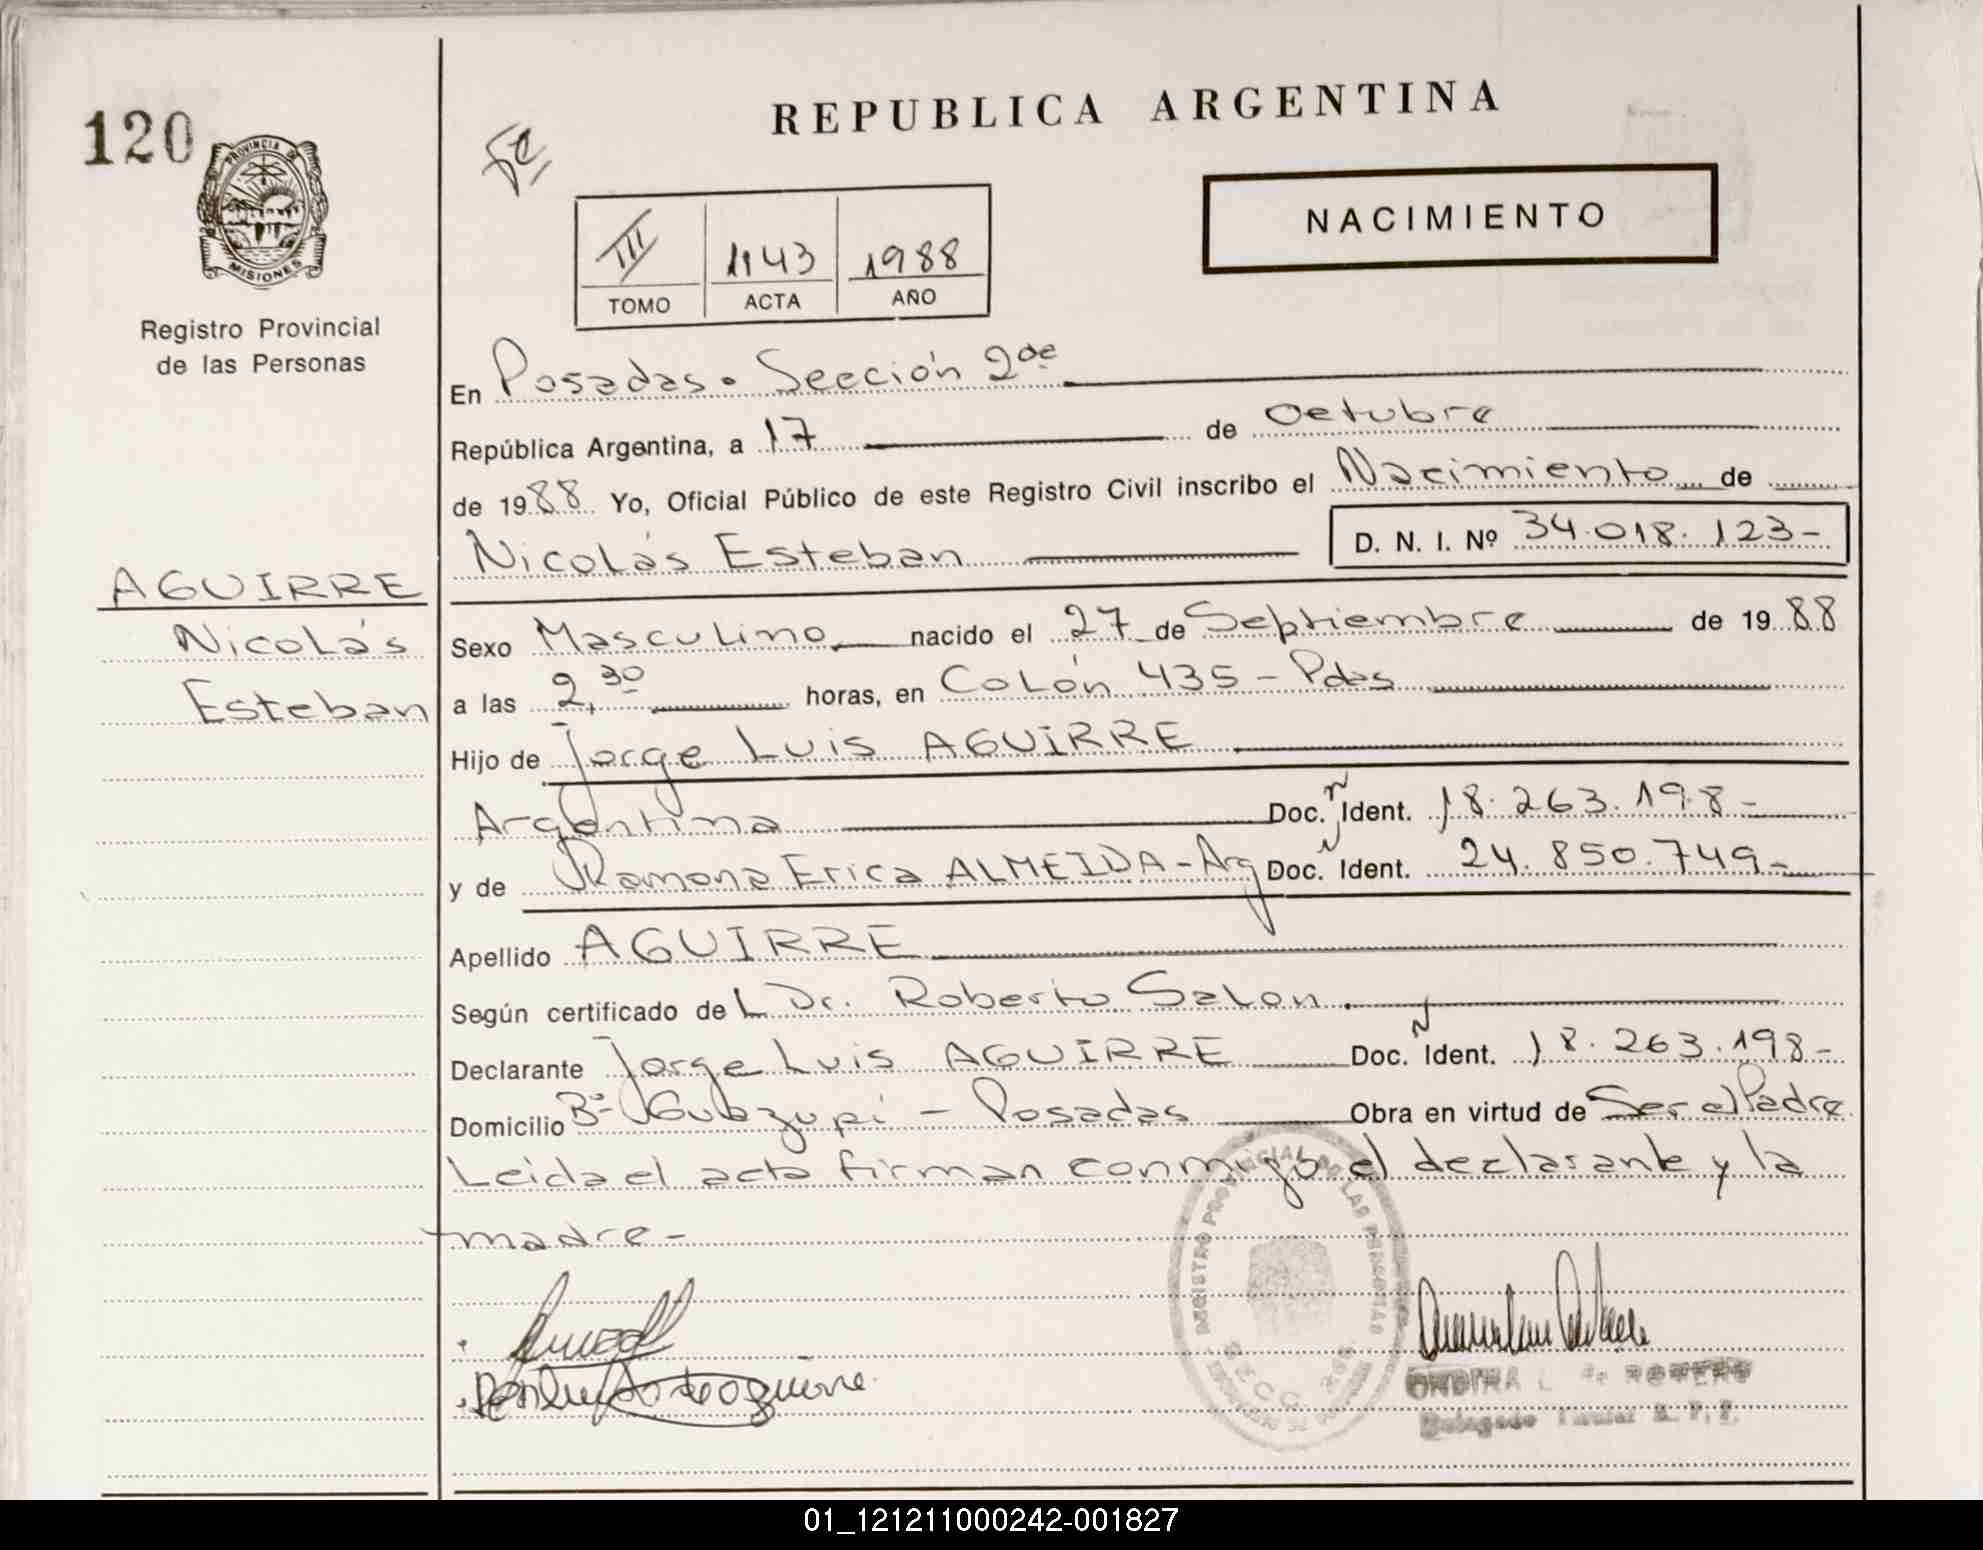 120
PROVINCIA DE
MISIONES
Registro Provincial
de las Personas
REPUBLICA ARGENTINA
NACIMIENTO
III 1143 1988
TOMO ACTA AÑO
En Posadas. Sección 2da
República Argentina, a 17 de octubre
de 1988 Yo, Oficial Público de este Registro Civil inscribo el Nacimiento de
Nicolás Esteban D. N. I. Nº 34.018.123-
AGUIRRE
Nicolás
Esteban
Sexo Masculino nacido el 27 de Septiembre de 1988
a las 2,30 horas, en Colón 435 - Pdas
Hijo de Jorge Luis AGUIRRE
Argentina Doc. Ident. 18.263.198-
y de Ramona Erica ALMEIDA - Arg Doc. Ident. 24.850.749-
Apellido AGUIRRE
Según certificado de L Dr. Roberto Salon
Declarante Jorge Luis AGUIRRE Doc. Ident. 18.263.198-
Domicilio Bº - Posadas Obra en virtud de Ser el Padre
Leida el acta firman conmigo el declarante y la
madre-
REGISTRO PROVINCIAL DE LAS PERSONAS
SECC. 2da
01_121211000242-001827